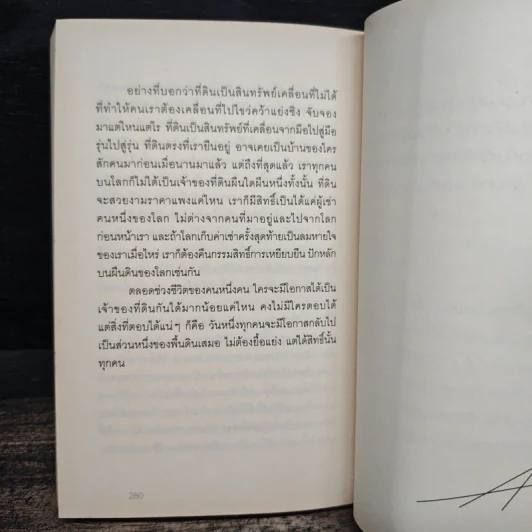 อย่างที่บอกว่าที่ดินเป็นสินทรัพย์เคลื่อนที่ไม่ได้
ที่ทำให้คนเราต้องเคลื่อนที่ไปไขว่คว้าแย่งชิง จับจอง
มาแต่ไหนแต่ไร ที่ดินเป็นสินทรัพย์ที่เคลื่อนจากมือไปสู่มือ
รุ่นไปสู่รุ่น ที่ดินตรงที่เรายืนอยู่ อาจเคยเป็นบ้านของใคร
สักคนมาก่อนเมื่อนานมาแล้ว แต่ถึงที่สุดแล้ว เราทุกคน
บนโลกก็ไม่ได้เป็นเจ้าของที่ดินผืนใดผืนหนึ่งทั้งนั้น ที่ดิน
จะสวยงามราคาแพงแค่ไหน เราก็มีสิทธิ์เป็นได้แค่ผู้เช่า
คนหนึ่งของโลก ไม่ต่างจากคนที่มาอยู่และไปจากโลก
ก่อนหน้าเรา และถ้าโลกเก็บค่าเช่าครั้งสุดท้ายเป็นลมหายใจ
ของเราเมื่อไหร่ เราก็ต้องคืนกรรมสิทธิ์การเหยียบยืน ปักหลัก
บนผืนดินของโลกเช่นกัน
ตลอดช่วงชีวิตของคนหนึ่งคน ใครจะมีโอกาสได้เป็น
เจ้าของที่ดินกันได้มากน้อยแค่ไหน คงไม่มีใครตอบได้
แต่สิ่งที่ตอบได้แน่ๆ ก็คือ วันหนึ่งทุกคนจะมีโอกาสกลับไป
เป็นส่วนหนึ่งของพื้นดินเสมอ ไม่ต้องยื้อแย่ง แต่ได้สิทธิ์นั้น
ทุกคน
260